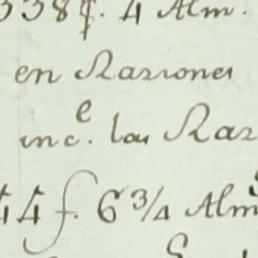 338f. 4 Alm.
en Raziones
inc.e las Raz
44 f. 6 3/4 Alm